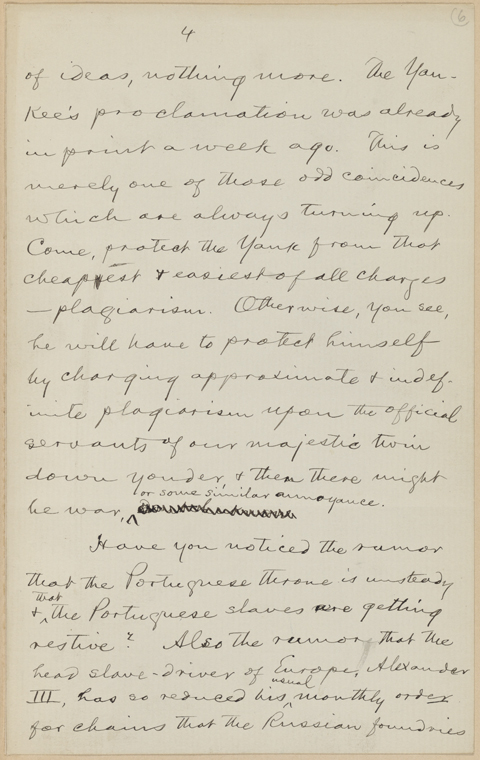 4
6
of ideas, nothing more. The Yan-
kee's proclamation was already
in print a week ago. This is
merely one of those odd coincidences
which are always turning up.
Come, protect the Yank from that
cheapest & easiest of all charges
— plagiarism. Otherwise, you see,
he will have to protect himself
by charging approximate & indef-
inite plagiarism upon the official
servants of our majestic twin
down yonder, & then there might
be war, or some similar annoyance.
Have you noticed the rumor
that the Portuguese throne is unsteady
& that the Portuguese slaves are getting
restive? Also the rumor that the
head slave-driver of Europe, Alexander
III, has so reduced his usual monthly order
for chains that the Russian foundries